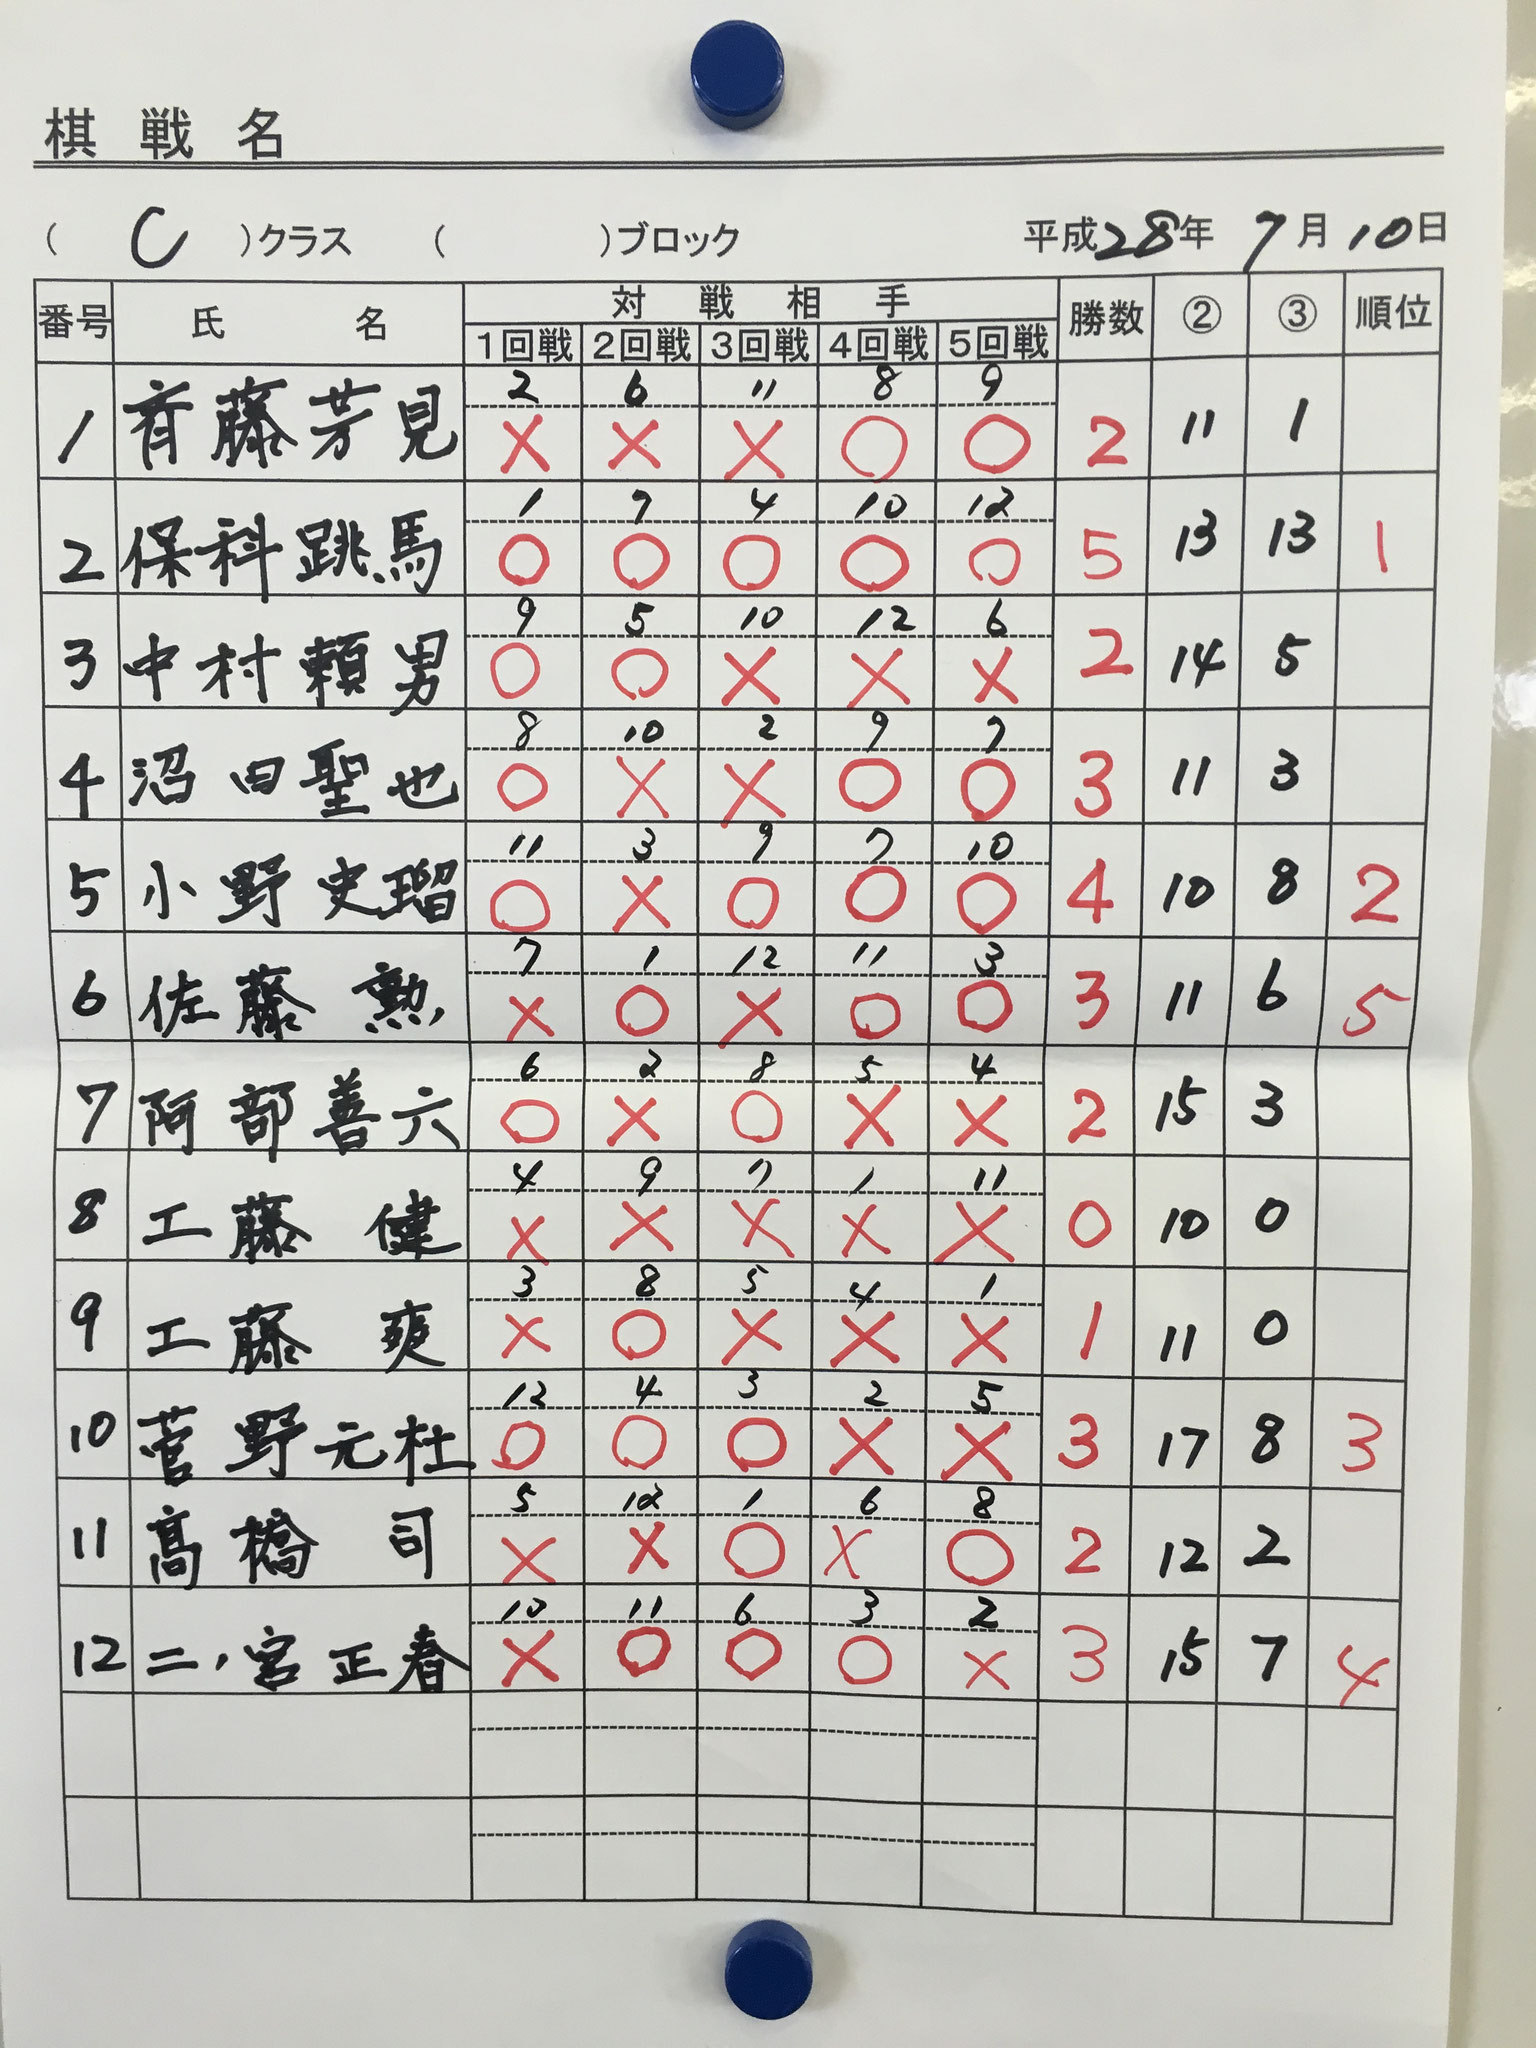 棋戦名
( C )クラス ( )ブロック 平成28年 7月10日
番号 氏名 対戦相手 勝数 ② ③ 順位
1回戦 2回戦 3回戦 4回戦 5回戦
2 6 11 8 9
1 斉藤芳見 × × × ○ ○ 2 11 1
1 7 4 10 12
2 保科跳馬 ○ ○ ○ ○ ○ 5 13 13 1
9 5 10 12 6
3 中村頼男 ○ ○ × × × 2 14 5
8 10 2 9 7
4 沼田聖也 ○ × × ○ ○ 3 11 3
11 3 9 7 10
5 小野史瑠 ○ × ○ ○ ○ 4 10 8 2
7 1 12 11 3
6 佐藤勲 × ○ × ○ ○ 3 11 6 5
6 2 8 5 4
7 阿部善六 ○ × ○ × × 2 15 3
4 9 7 1 11
8 工藤健 × × × × × 0 10 0
3 8 5 4 1
9 工藤爽 × ○ × × × 1 11 0
12 4 3 2 5
10 菅野元杜 ○ ○ ○ × × 3 17 8 3
5 12 1 6 8
11 髙橋司 × × ○ × ○ 2 12 2
10 11 6 3 2
12 二ノ宮正春 × ○ ○ ○ × 3 15 7 4